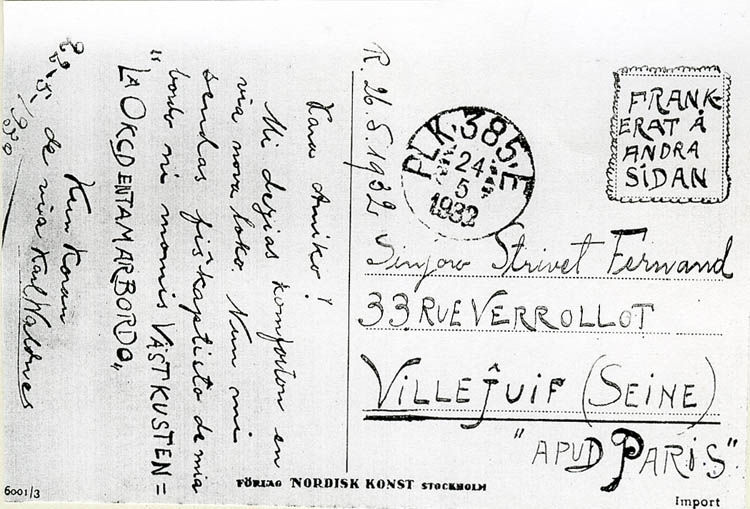 Kara Amiko!
Mi deziras komforton en
via nova loko. Nun mi
sendas fiŝkaptisto de mia
bordo ni nomis VÄSTKUSTEN =
"LA OKCDENTAMARBORDO„
Kun Koran
de via Karl Waldnes
R. 26.5.1932
PLK.385.E
24
5
1932
FRANK-
ERAT Å
ANDRA
SIDAN
Sinjoro Strivet Fernand
33 RUE VERROLLOT
VILLEJUIF (SEINE)
"APUD PARIS"
6001/3
FÖRLAG NORDISK KONST STOCKHOLM
Import